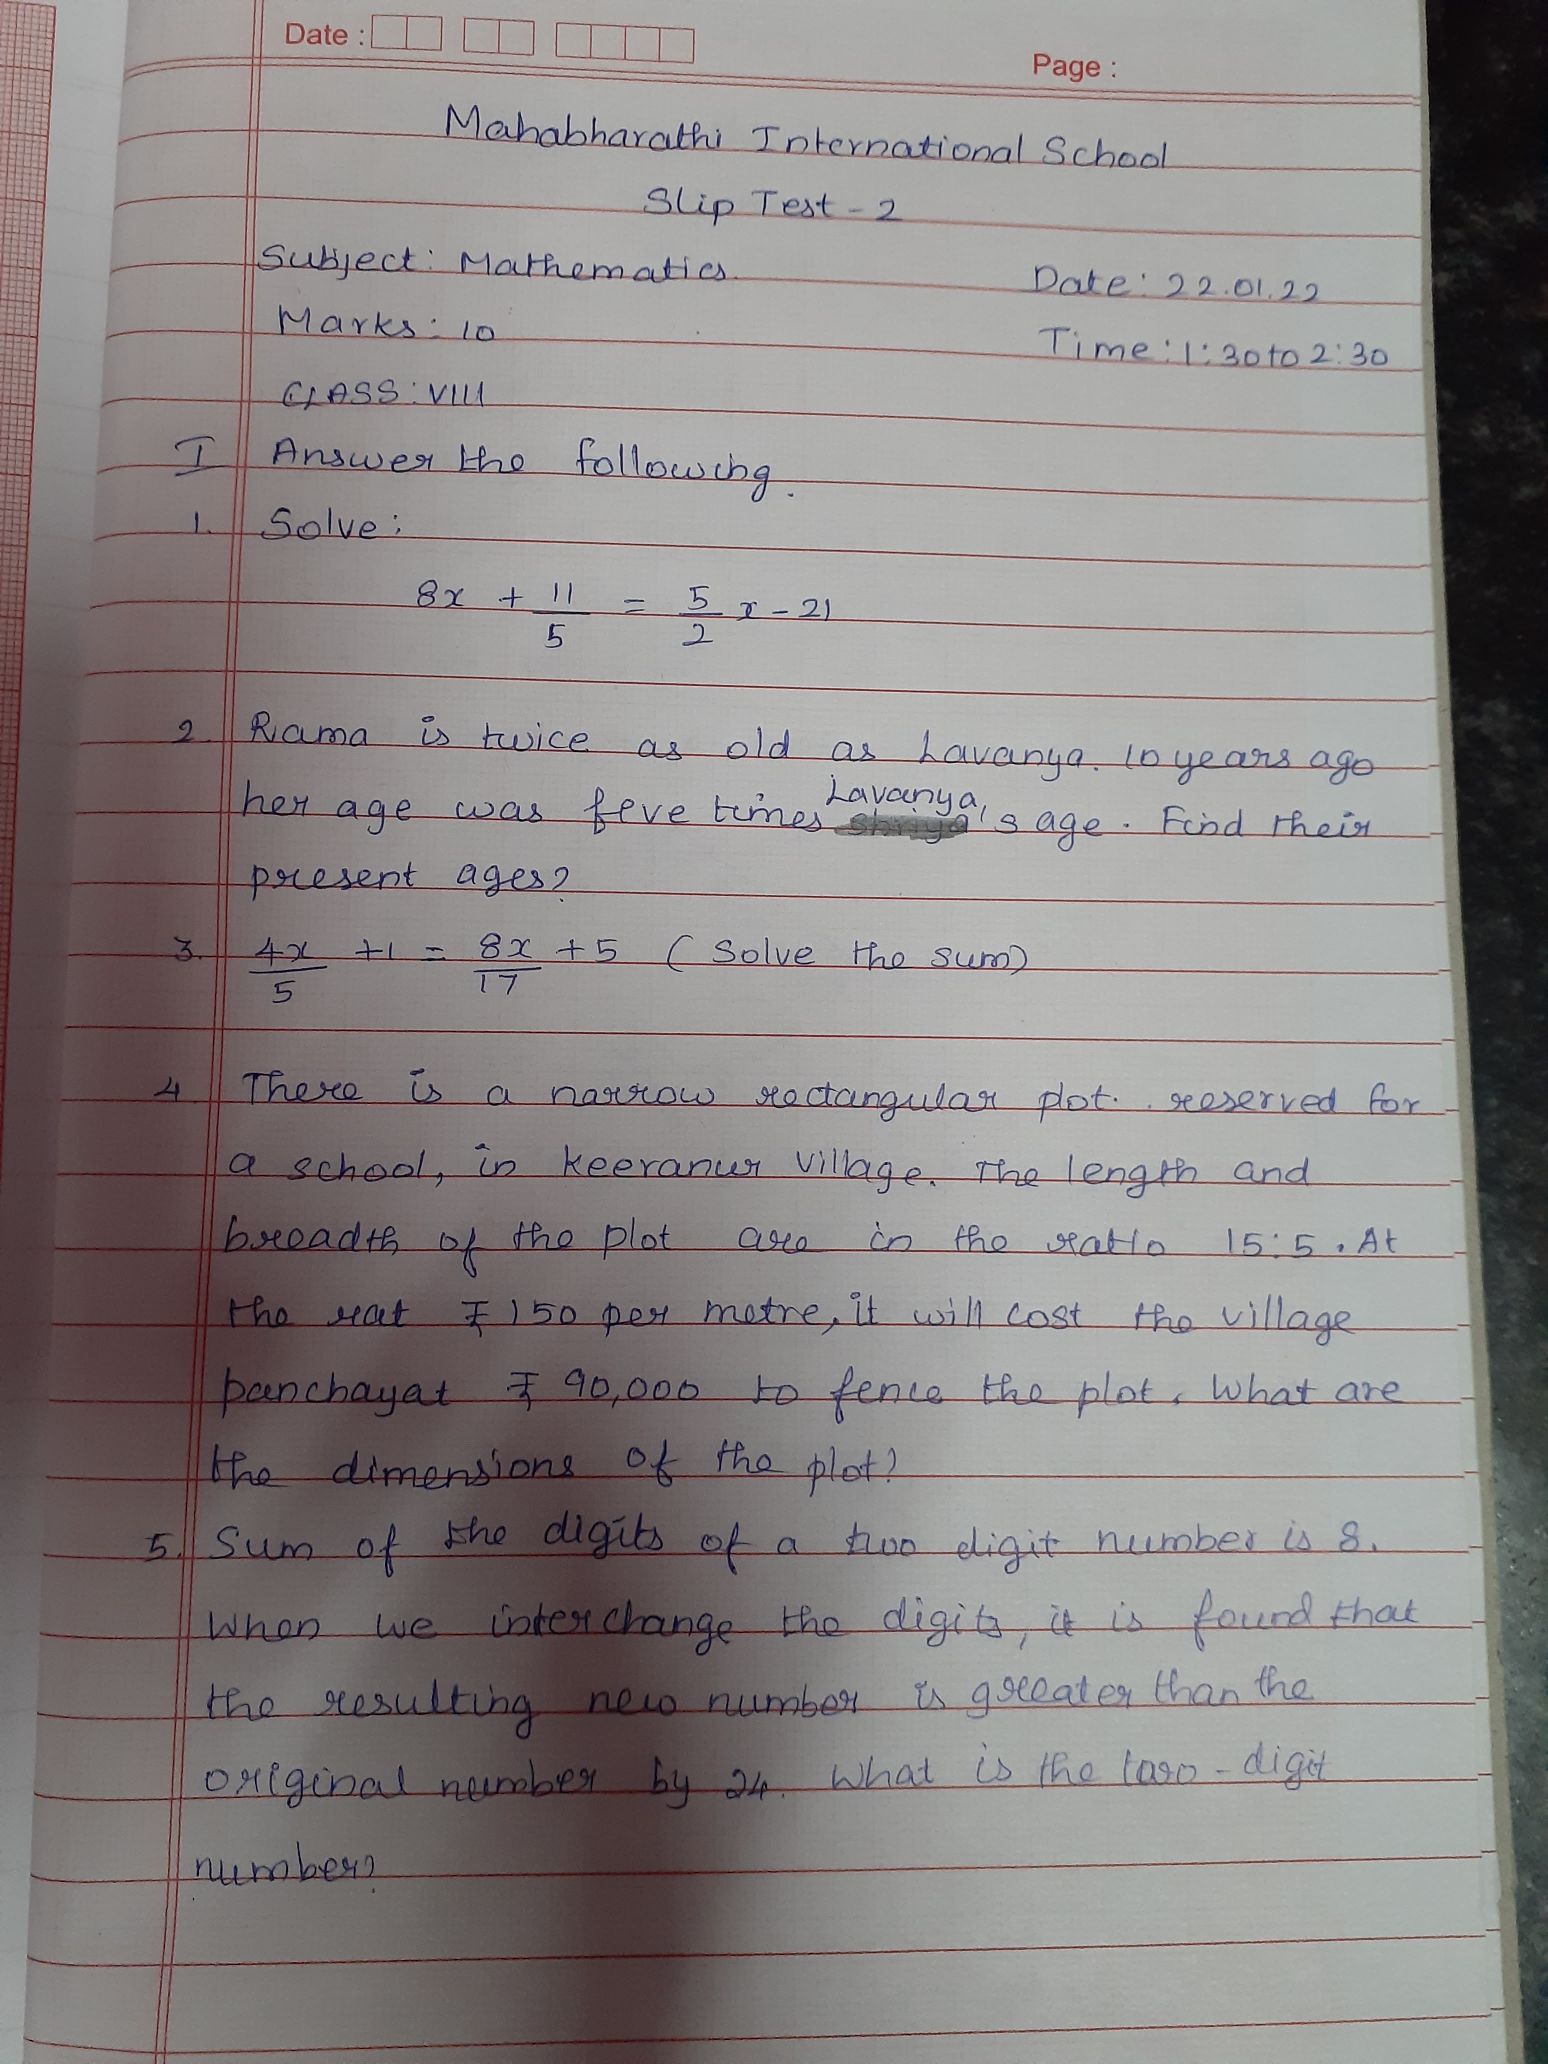 Date :
Page :
Mahabharathi International School
Slip Test - 2
Subject: Mathematics.
Date: 22.01.22
Marks: 10
Time: 1:30 to 2:30
CLASS: VIII
I Answer the following.
1. Solve:
8x + 11/5 = 5/2 x - 21
2. Rama is twice as old as Lavanya. 10 years ago
her age was five times Lavanya's age. Find their
present ages?
3. 4x/5 +1 = 8x/17 + 5 (Solve the sum)
4 There is a narrow rectangular plot. reserved for
a school, in keeranur village. The length and
breadth of the plot are in the ratio 15:5. At
the rat ₹ 150 per metre, it will cost the village
panchayat ₹ 90,000 to fence the plot. What are
the dimensions of the plot?
5. Sum of the digits of a two digit number is 8.
When we interchange the digits, it is found that
the resulting new number is greater than the
original number by 24. What is the two-digit
number?